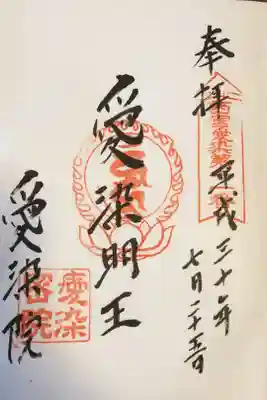 奉拝
平成三十年
七月二十五日
愛染明王
愛染院
愛染